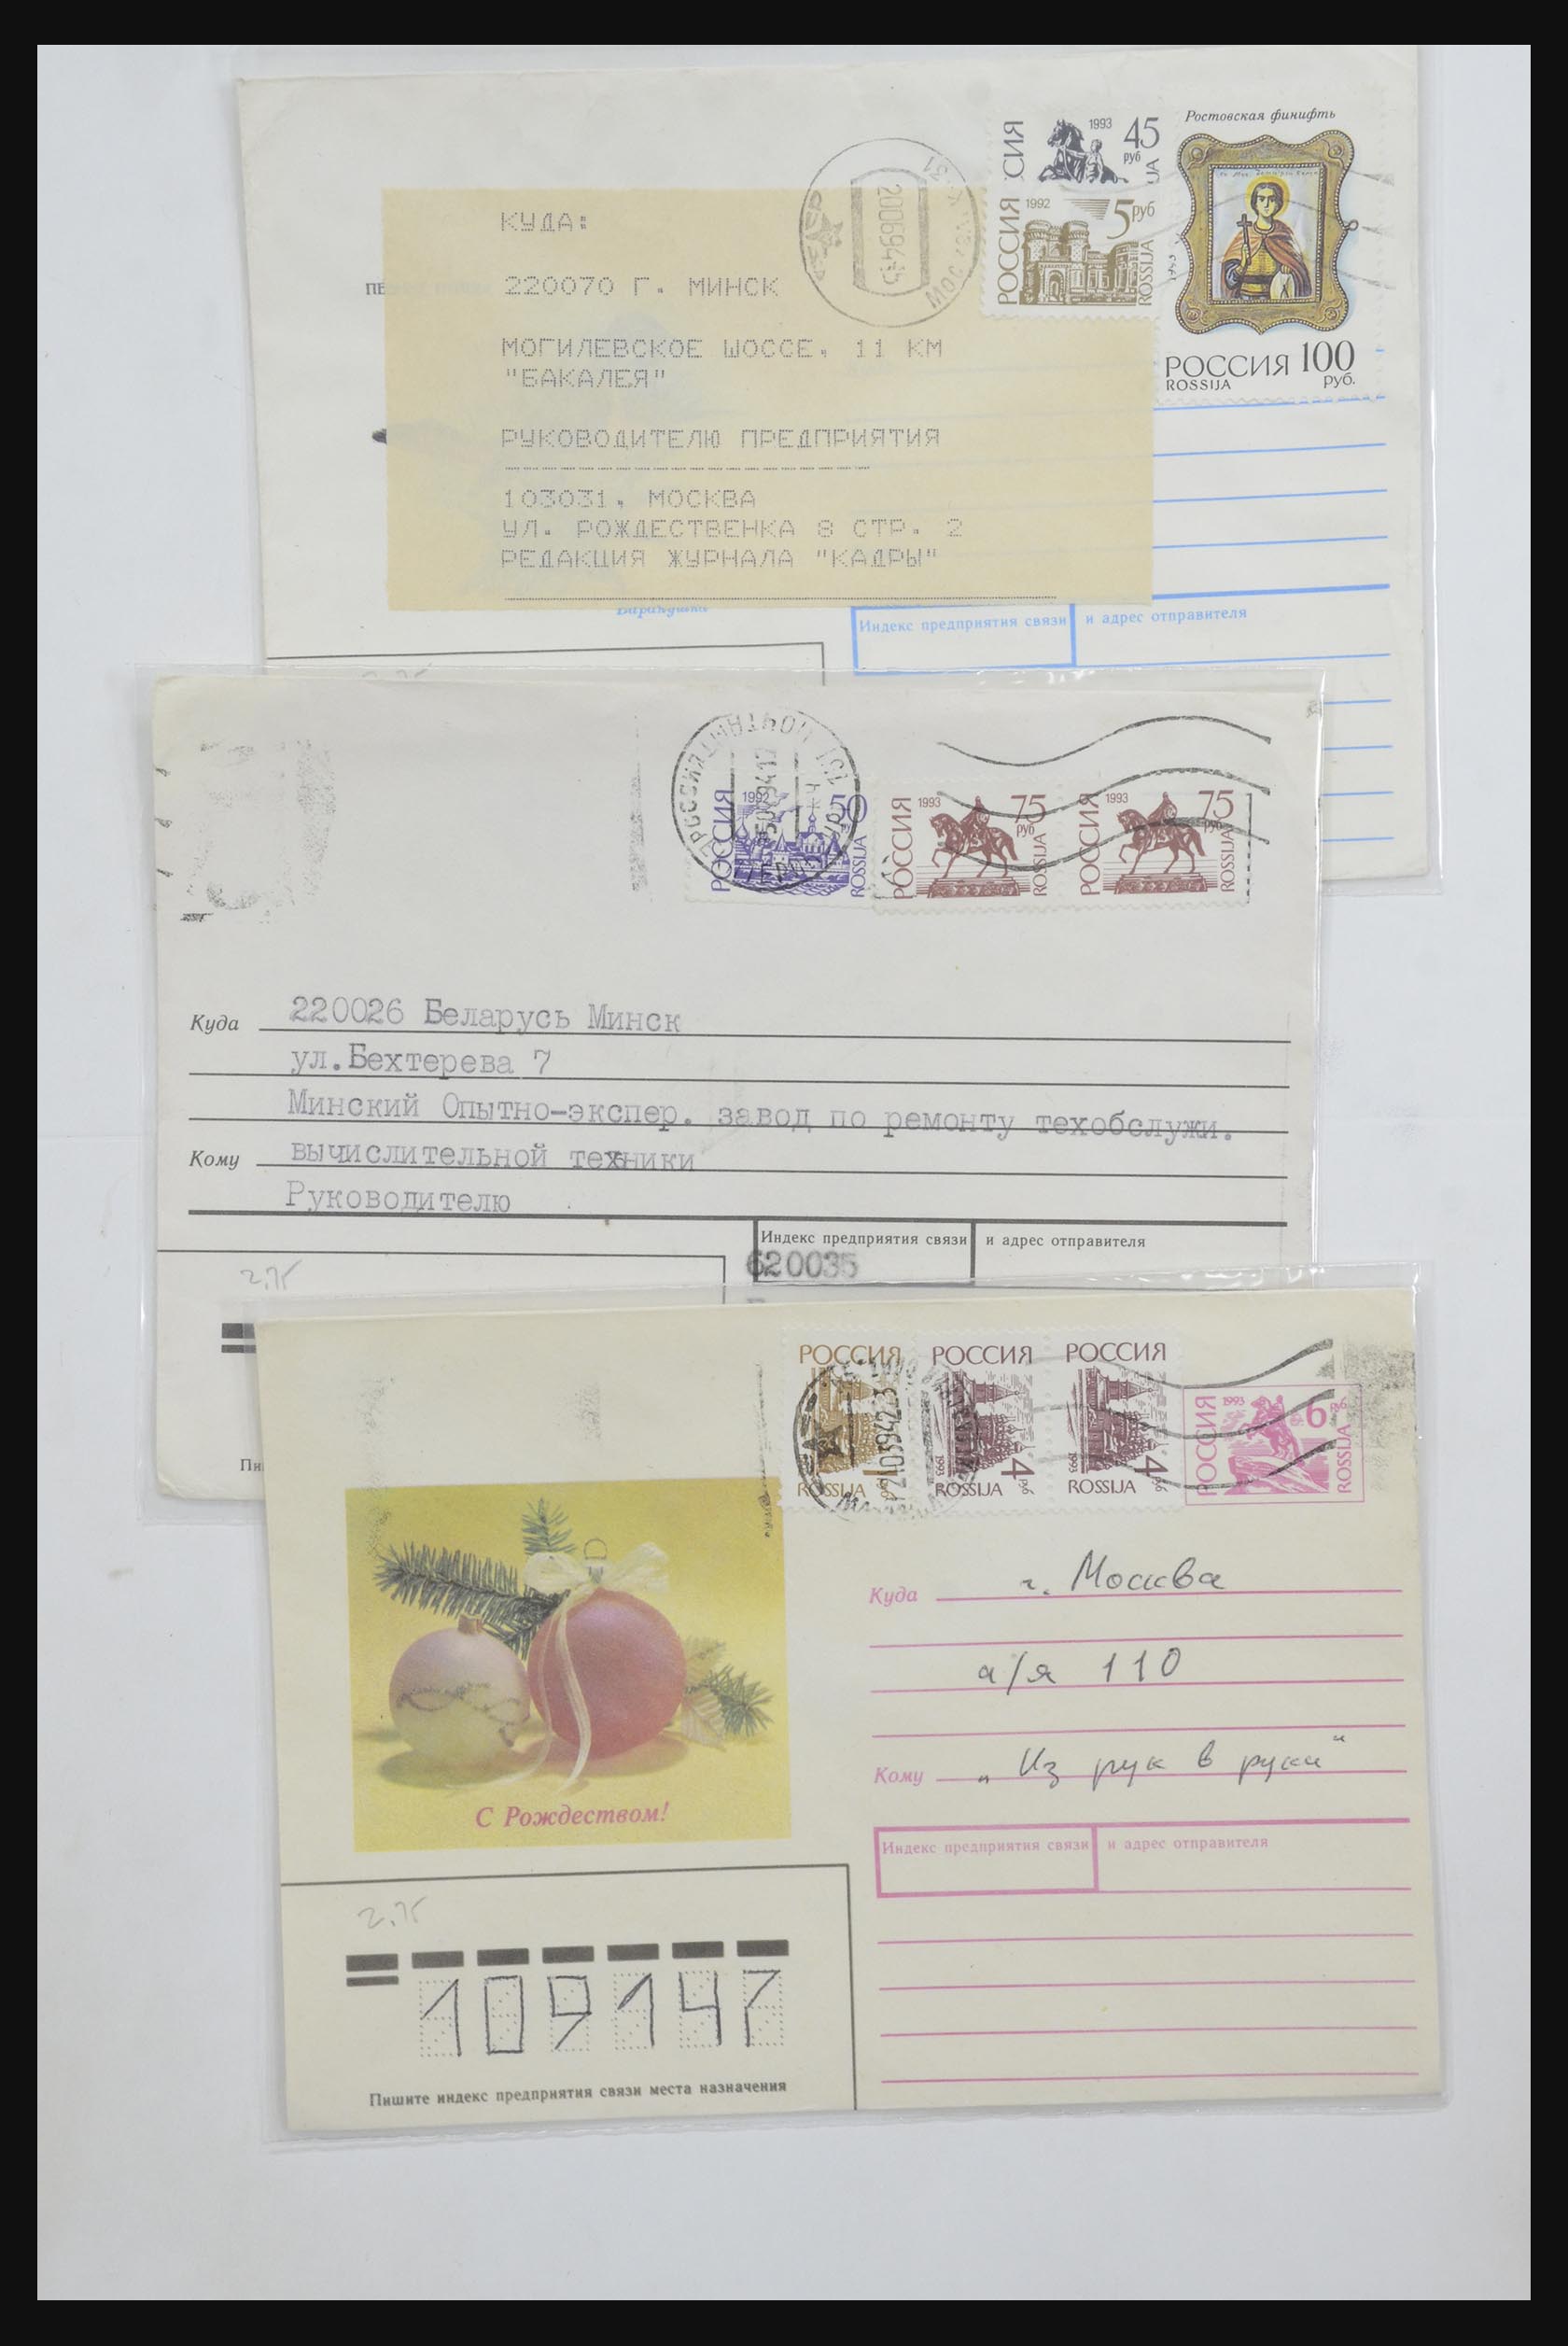 Ростовская финифть
1993 45 руб
РОССИЯ 1992 5 руб ROSSIJA
РОССИЯ 100
ROSSIJA руб.
200694
КУДА:
220070 Г. МИНСК
МОГИЛЕВСКОЕ ШОССЕ, 11 КМ
"БАКАЛЕЯ"
РУКОВОДИТЕЛЮ ПРЕДПРИЯТИЯ
103031, МОСКВА
УЛ. РОЖДЕСТВЕНКА 8 СТР. 2
РЕДАКЦИЯ ЖУРНАЛА "КАДРЫ"
Индекс предприятия связи и адрес отправителя
РОССИЯ 1992 50 ROSSIJA
РОССИЯ 1993 75 руб ROSSIJA
РОССИЯ 1993 75 руб ROSSIJA
Куда 220026 Беларусь Минск
ул.Бехтерева 7
Минский Опытно-экспер. завод по ремонту техобслужи.
Кому вычислительной техники
Руководителю
Индекс предприятия связи и адрес отправителя
620035
2,75
РОССИЯ ROSSIJA
РОССИЯ 1993 4 руб ROSSIJA
РОССИЯ 1993 4 руб ROSSIJA
РОССИЯ 1993 6 руб ROSSIJA
С Рождеством!
Куда г. Москва
а/я 110
Кому „Из рук в руки"
Индекс предприятия связи и адрес отправителя
2,75
109147
Пишите индекс предприятия связи места назначения